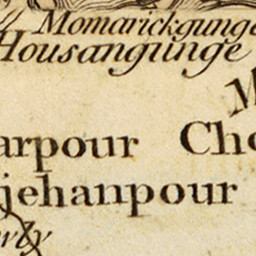 Momarickgunge
Housangunge
M
arpour Cho
jehanpour